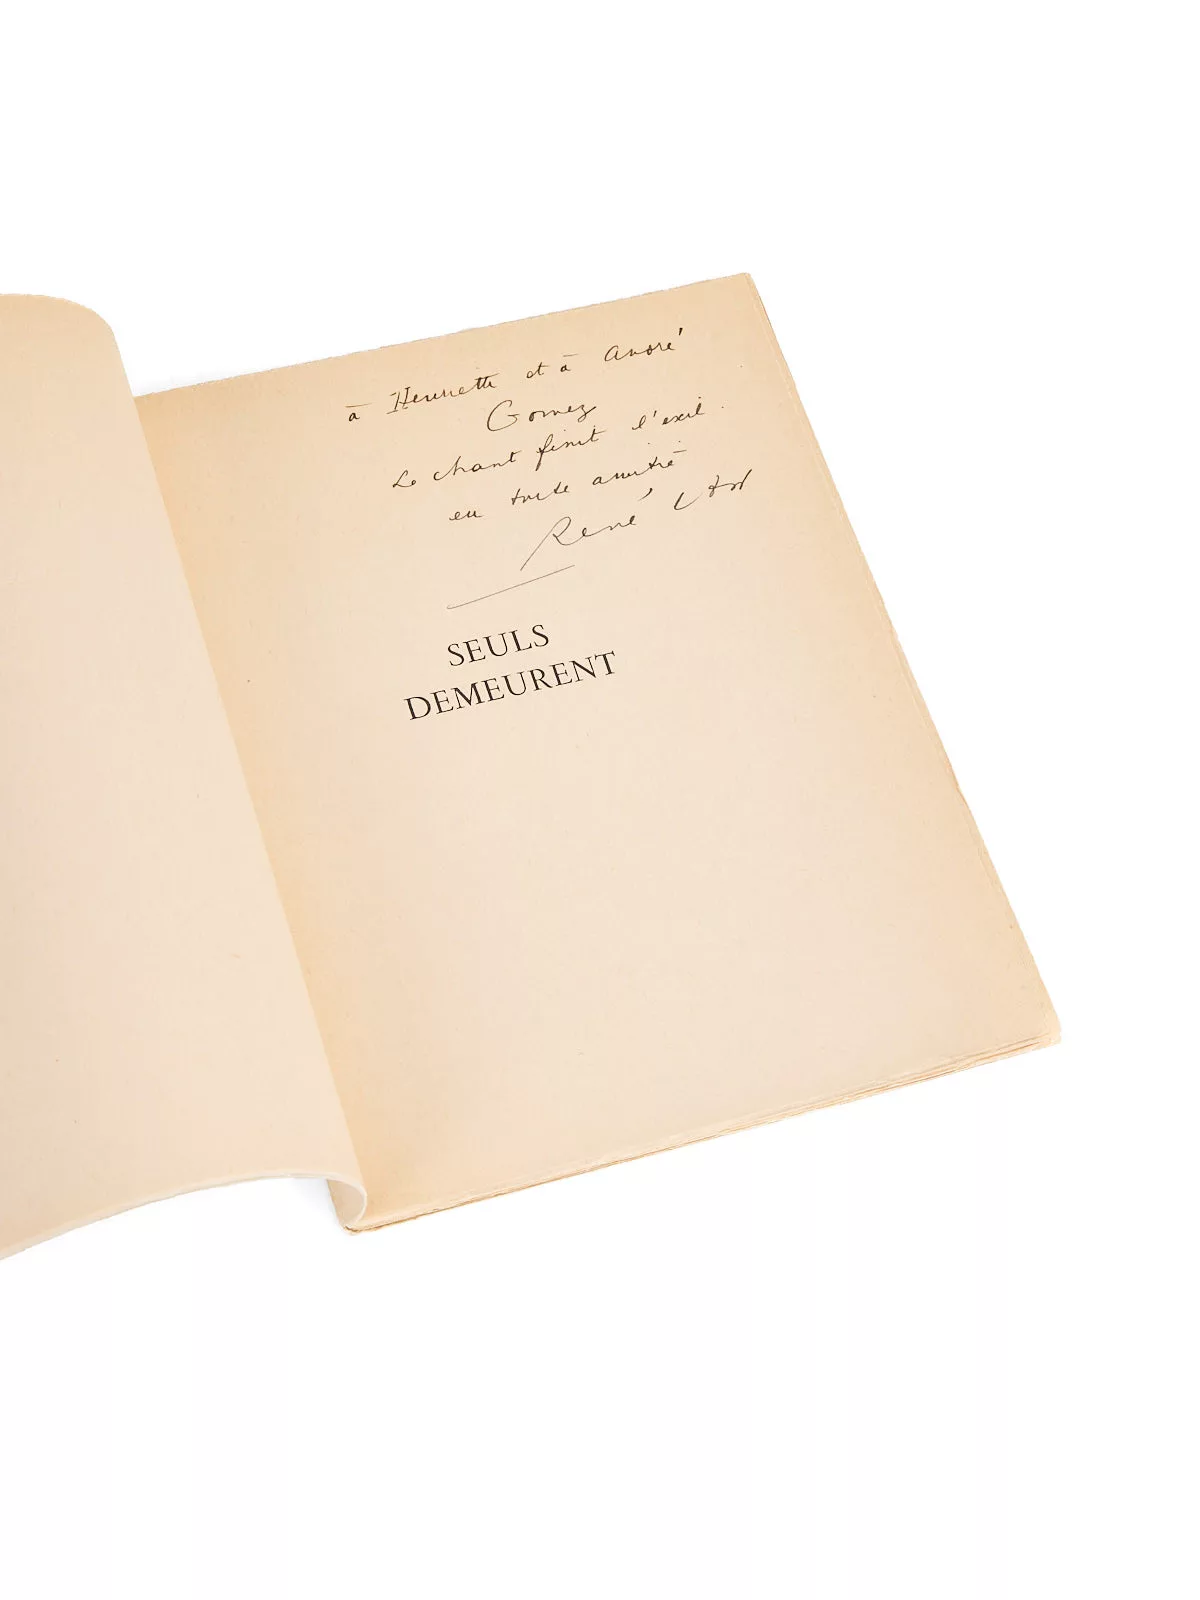 à Henriette et à André
Gomez
Le chant finit l'exil.
en toute amitié
René Char
SEULS
DEMEURENT